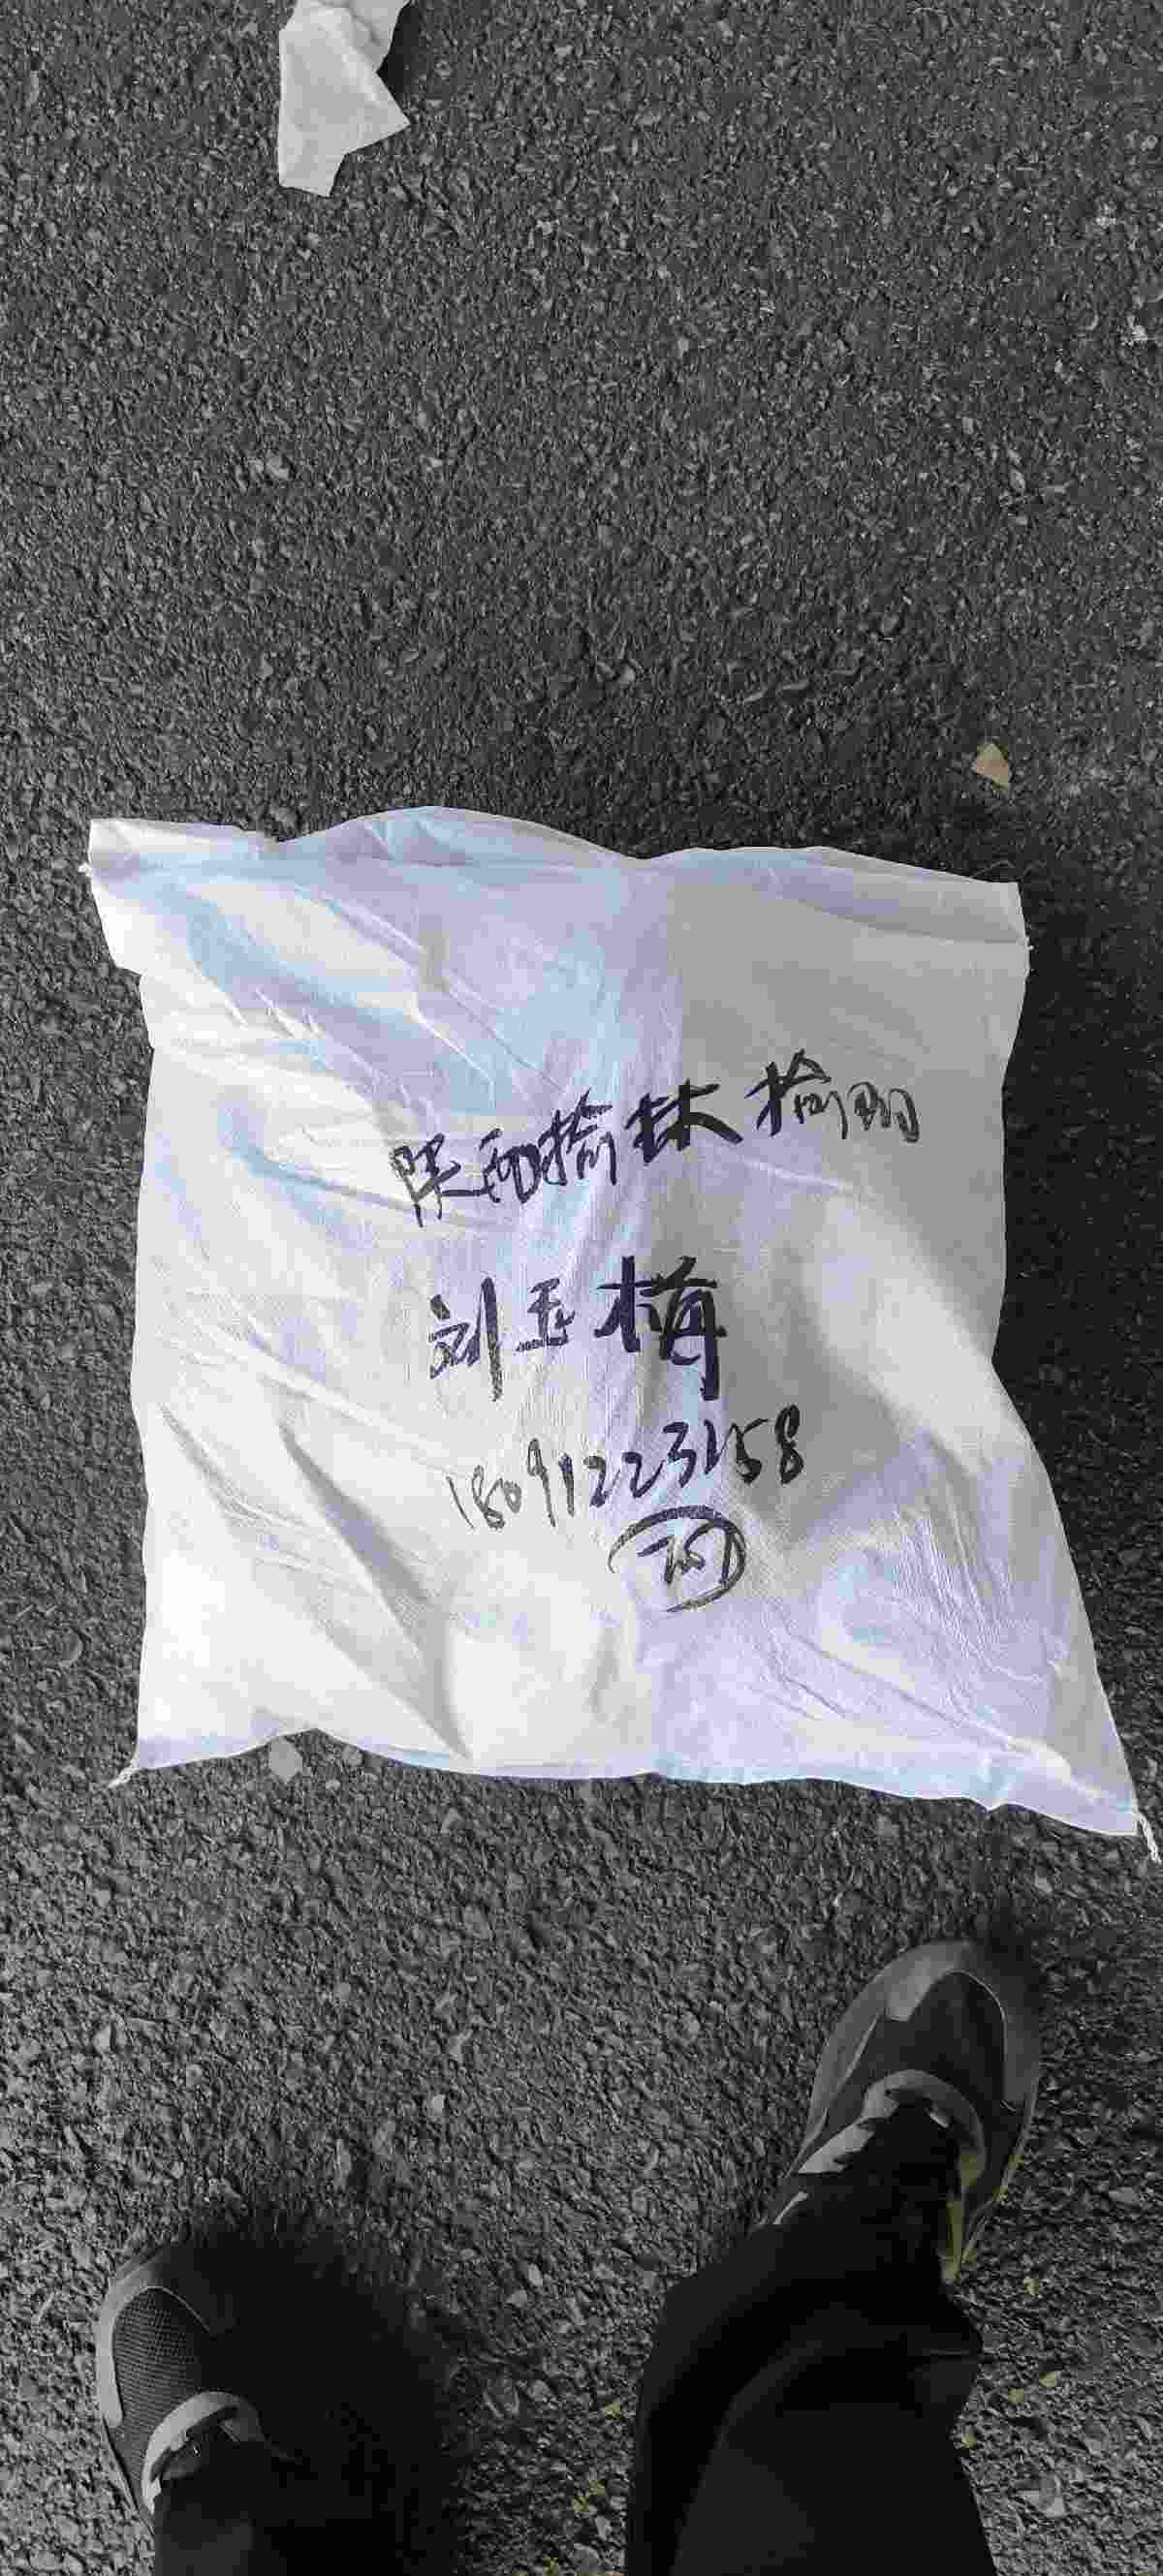 陕西榆林榆阳
刘玉梅
18091223158